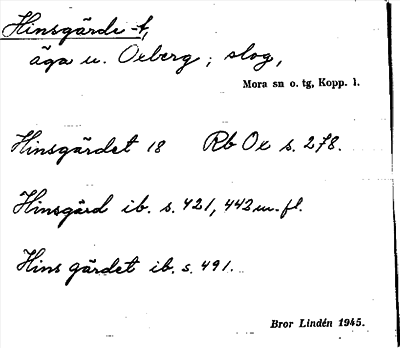 Hinsgärde -t,
äga u. Oxberg; slog,
Mora sn o. tg, Kopp. l.
Hinsgärdet 18 Rb Ox s. 278.
Hinsgärd ib. s. 421, 442 m. fl.
Hinsgärdet ib. s. 491.
Bror Lindén 1945.